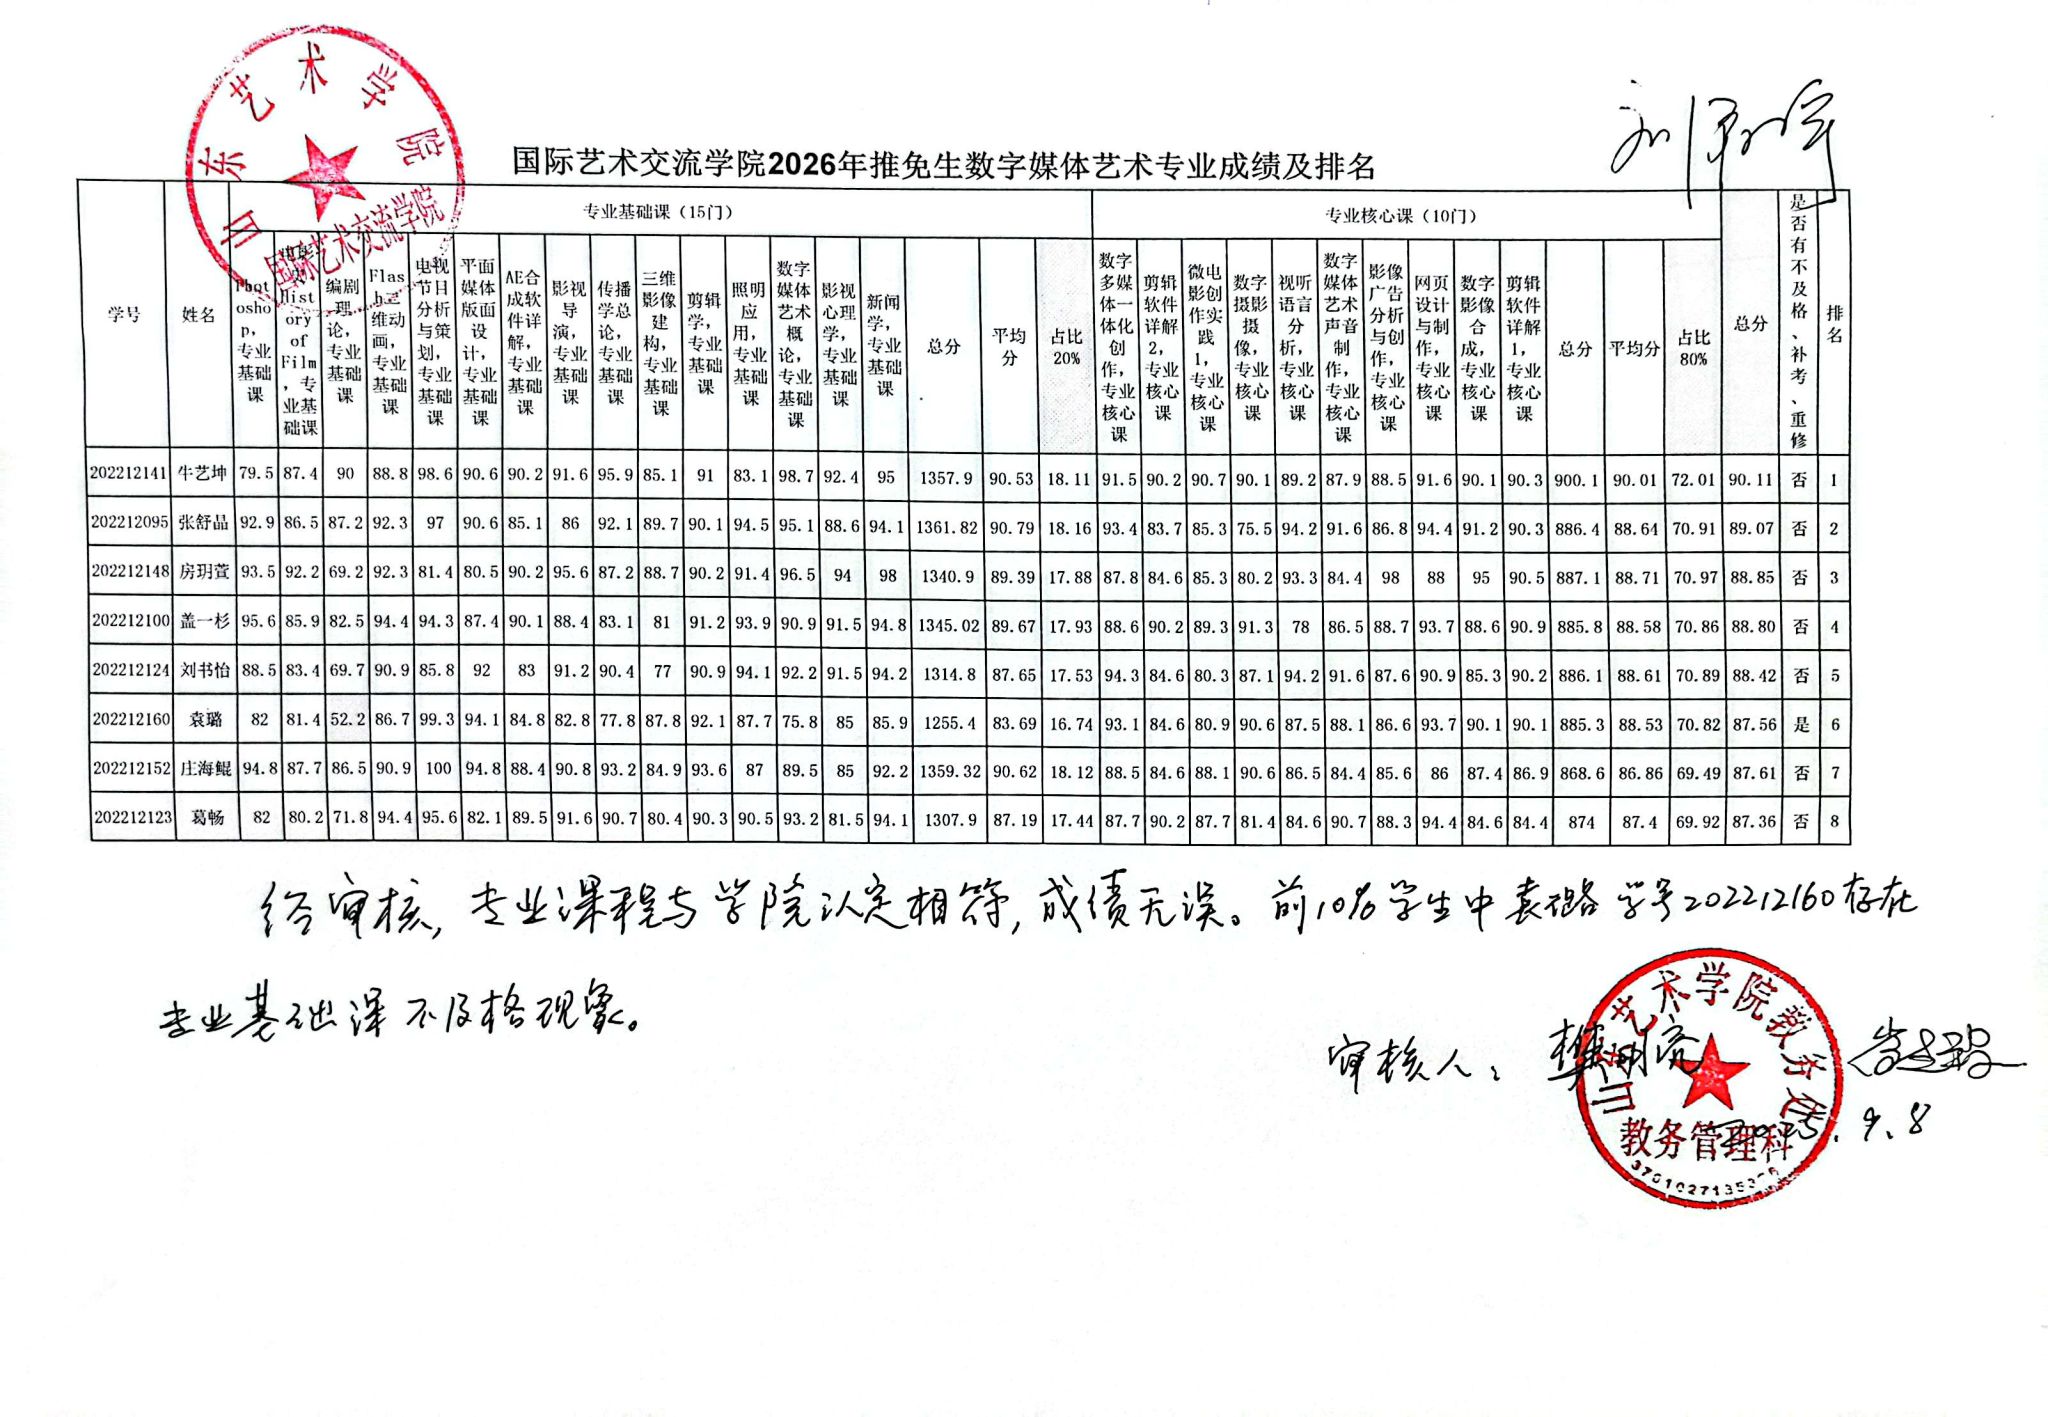 山东艺术学院
国际艺术交流学院
国际艺术交流学院2026年推免生数字媒体艺术专业成绩及排名
学号 姓名 专业基础课（15门） 专业核心课（10门） 总分 是否有不及格、补考、重修 排名
Photoshop，专业基础课 History of Film，专业基础课 编剧理论，专业基础课 Flash二维动画，专业基础课 电视节目分析与策划，专业基础课 平面媒体版面设计，专业基础课 AE合成软件详解，专业基础课 影视导演，专业基础课 传播学总论，专业基础课 三维影像建构，专业基础课 剪辑学，专业基础课 照明应用，专业基础课 数字媒体艺术概论，专业基础课 影视心理学，专业基础课 新闻学，专业基础课 总分 平均分 占比20% 数字多媒体一体化创作，专业核心课 剪辑软件详解2，专业核心课 微电影创作实践1，专业核心课 数字摄影摄像，专业核心课 视听语言分析，专业核心课 数字媒体艺术声音制作，专业核心课 影像广告分析与创作，专业核心课 网页设计与制作，专业核心课 数字影像合成，专业核心课 剪辑软件详解1，专业核心课 总分 平均分 占比80%
202212141 牛艺坤 79.5 87.4 90 88.8 98.6 90.6 90.2 91.6 95.9 85.1 91 83.1 98.7 92.4 95 1357.9 90.53 18.11 91.5 90.2 90.7 90.1 89.2 87.9 88.5 91.6 90.1 90.3 900.1 90.01 72.01 90.11 否 1
202212095 张舒晶 92.9 86.5 87.2 92.3 97 90.6 85.1 86 92.1 89.7 90.1 94.5 95.1 88.6 94.1 1361.82 90.79 18.16 93.4 83.7 85.3 75.5 94.2 91.6 86.8 94.4 91.2 90.3 886.4 88.64 70.91 89.07 否 2
202212148 房玥萱 93.5 92.2 69.2 92.3 81.4 80.5 90.2 95.6 87.2 88.7 90.2 91.4 96.5 94 98 1340.9 89.39 17.88 87.8 84.6 85.3 80.2 93.3 84.4 98 88 95 90.5 887.1 88.71 70.97 88.85 否 3
202212100 盖一杉 95.6 85.9 82.5 94.4 94.3 87.4 90.1 88.4 83.1 81 91.2 93.9 90.9 91.5 94.8 1345.02 89.67 17.93 88.6 90.2 89.3 91.3 78 86.5 88.7 93.7 88.6 90.9 885.8 88.58 70.86 88.80 否 4
202212124 刘书怡 88.5 83.4 69.7 90.9 85.8 92 83 91.2 90.4 77 90.9 94.1 92.2 91.5 94.2 1314.8 87.65 17.53 94.3 84.6 80.3 87.1 94.2 91.6 87.6 90.9 85.3 90.2 886.1 88.61 70.89 88.42 否 5
202212160 袁璐 82 81.4 52.2 86.7 99.3 94.1 84.8 82.8 77.8 87.8 92.1 87.7 75.8 85 85.9 1255.4 83.69 16.74 93.1 84.6 80.9 90.6 87.5 88.1 86.6 93.7 90.1 90.1 885.3 88.53 70.82 87.56 是 6
202212152 庄海鲲 94.8 87.7 86.5 90.9 100 94.8 88.4 90.8 93.2 84.9 93.6 87 89.5 85 92.2 1359.32 90.62 18.12 88.5 84.6 88.1 90.6 86.5 84.4 85.6 86 87.4 86.9 868.6 86.86 69.49 87.61 否 7
202212123 葛畅 82 80.2 71.8 94.4 95.6 82.1 89.5 91.6 90.7 80.4 90.3 90.5 93.2 81.5 94.1 1307.9 87.19 17.44 87.7 90.2 87.7 81.4 84.6 90.7 88.3 94.4 84.6 84.4 874 87.4 69.92 87.36 否 8
经审核，专业课程与学院认定相符，成绩无误。前10%学生中袁璐 学号202212160存在
专业基础课不及格现象。
审核人：
2025.9.8
山东艺术学院教务处
教务管理科